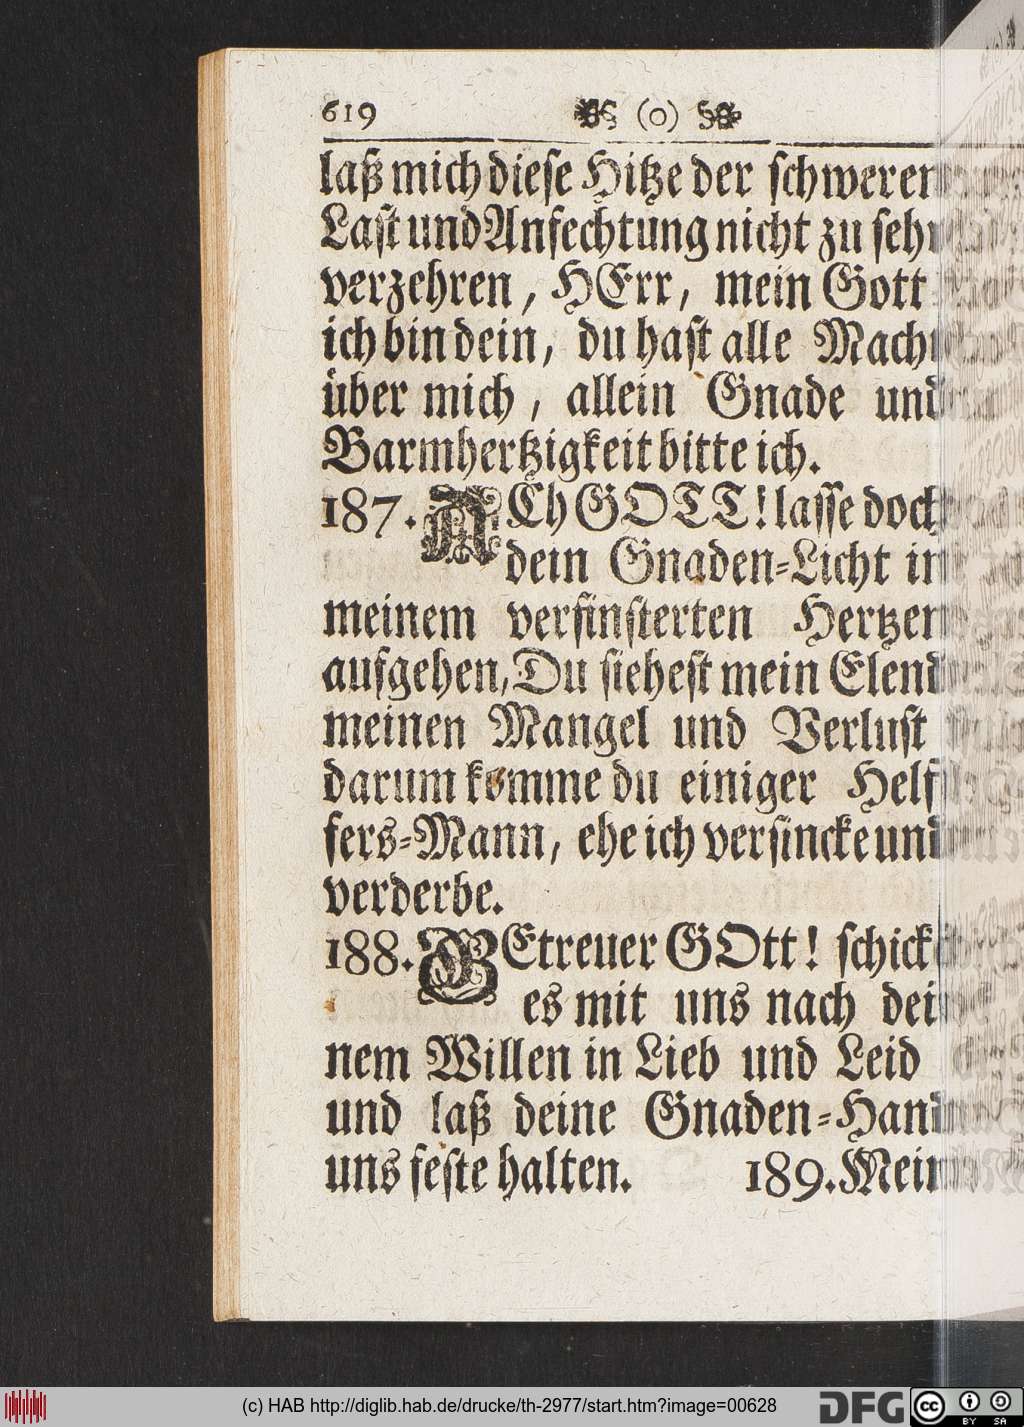 619 (o)
laß mich diese Hitze der schweren
Last und Anfechtung nicht zu sehr
verzehren, HErr, mein Gott
ich bin dein, du hast alle Mach
über mich, allein Gnade und
Barmhertzigkeit bitte ich.
187. ACh GOTT! lasse doch
dein Gnaden-Licht in
meinem verfinsterten Hertzen
aufgehen, Du siehest mein Elend
meinen Mangel und Verlust
darum komme du einiger Helf
fers-Mann, ehe ich versincke und
verderbe.
188. GEtreuer GOtt! schick
es mit uns nach dei
nem Willen in Lieb und Leid
und laß deine Gnaden-Hand
uns feste halten. 189. Mein
(c) HAB http://diglib.hab.de/drucke/th-2977/start.htm?image=00628
DFG cc BY SA